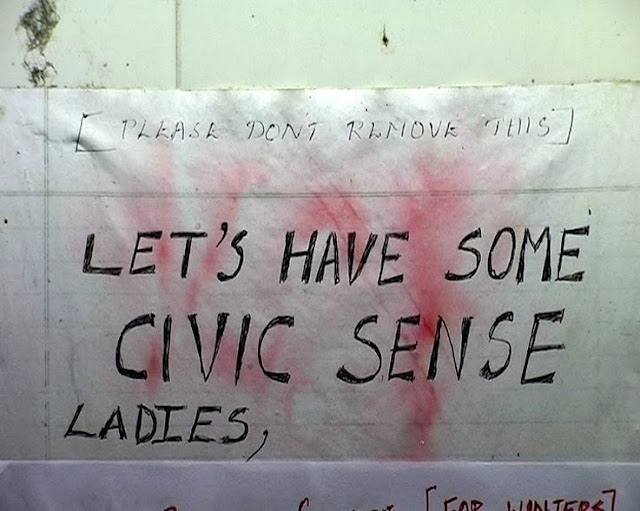 [PLEASE DON'T REMOVE THIS]
LET'S HAVE SOME
CIVIC SENSE
LADIES,
[FOR WONTERS]